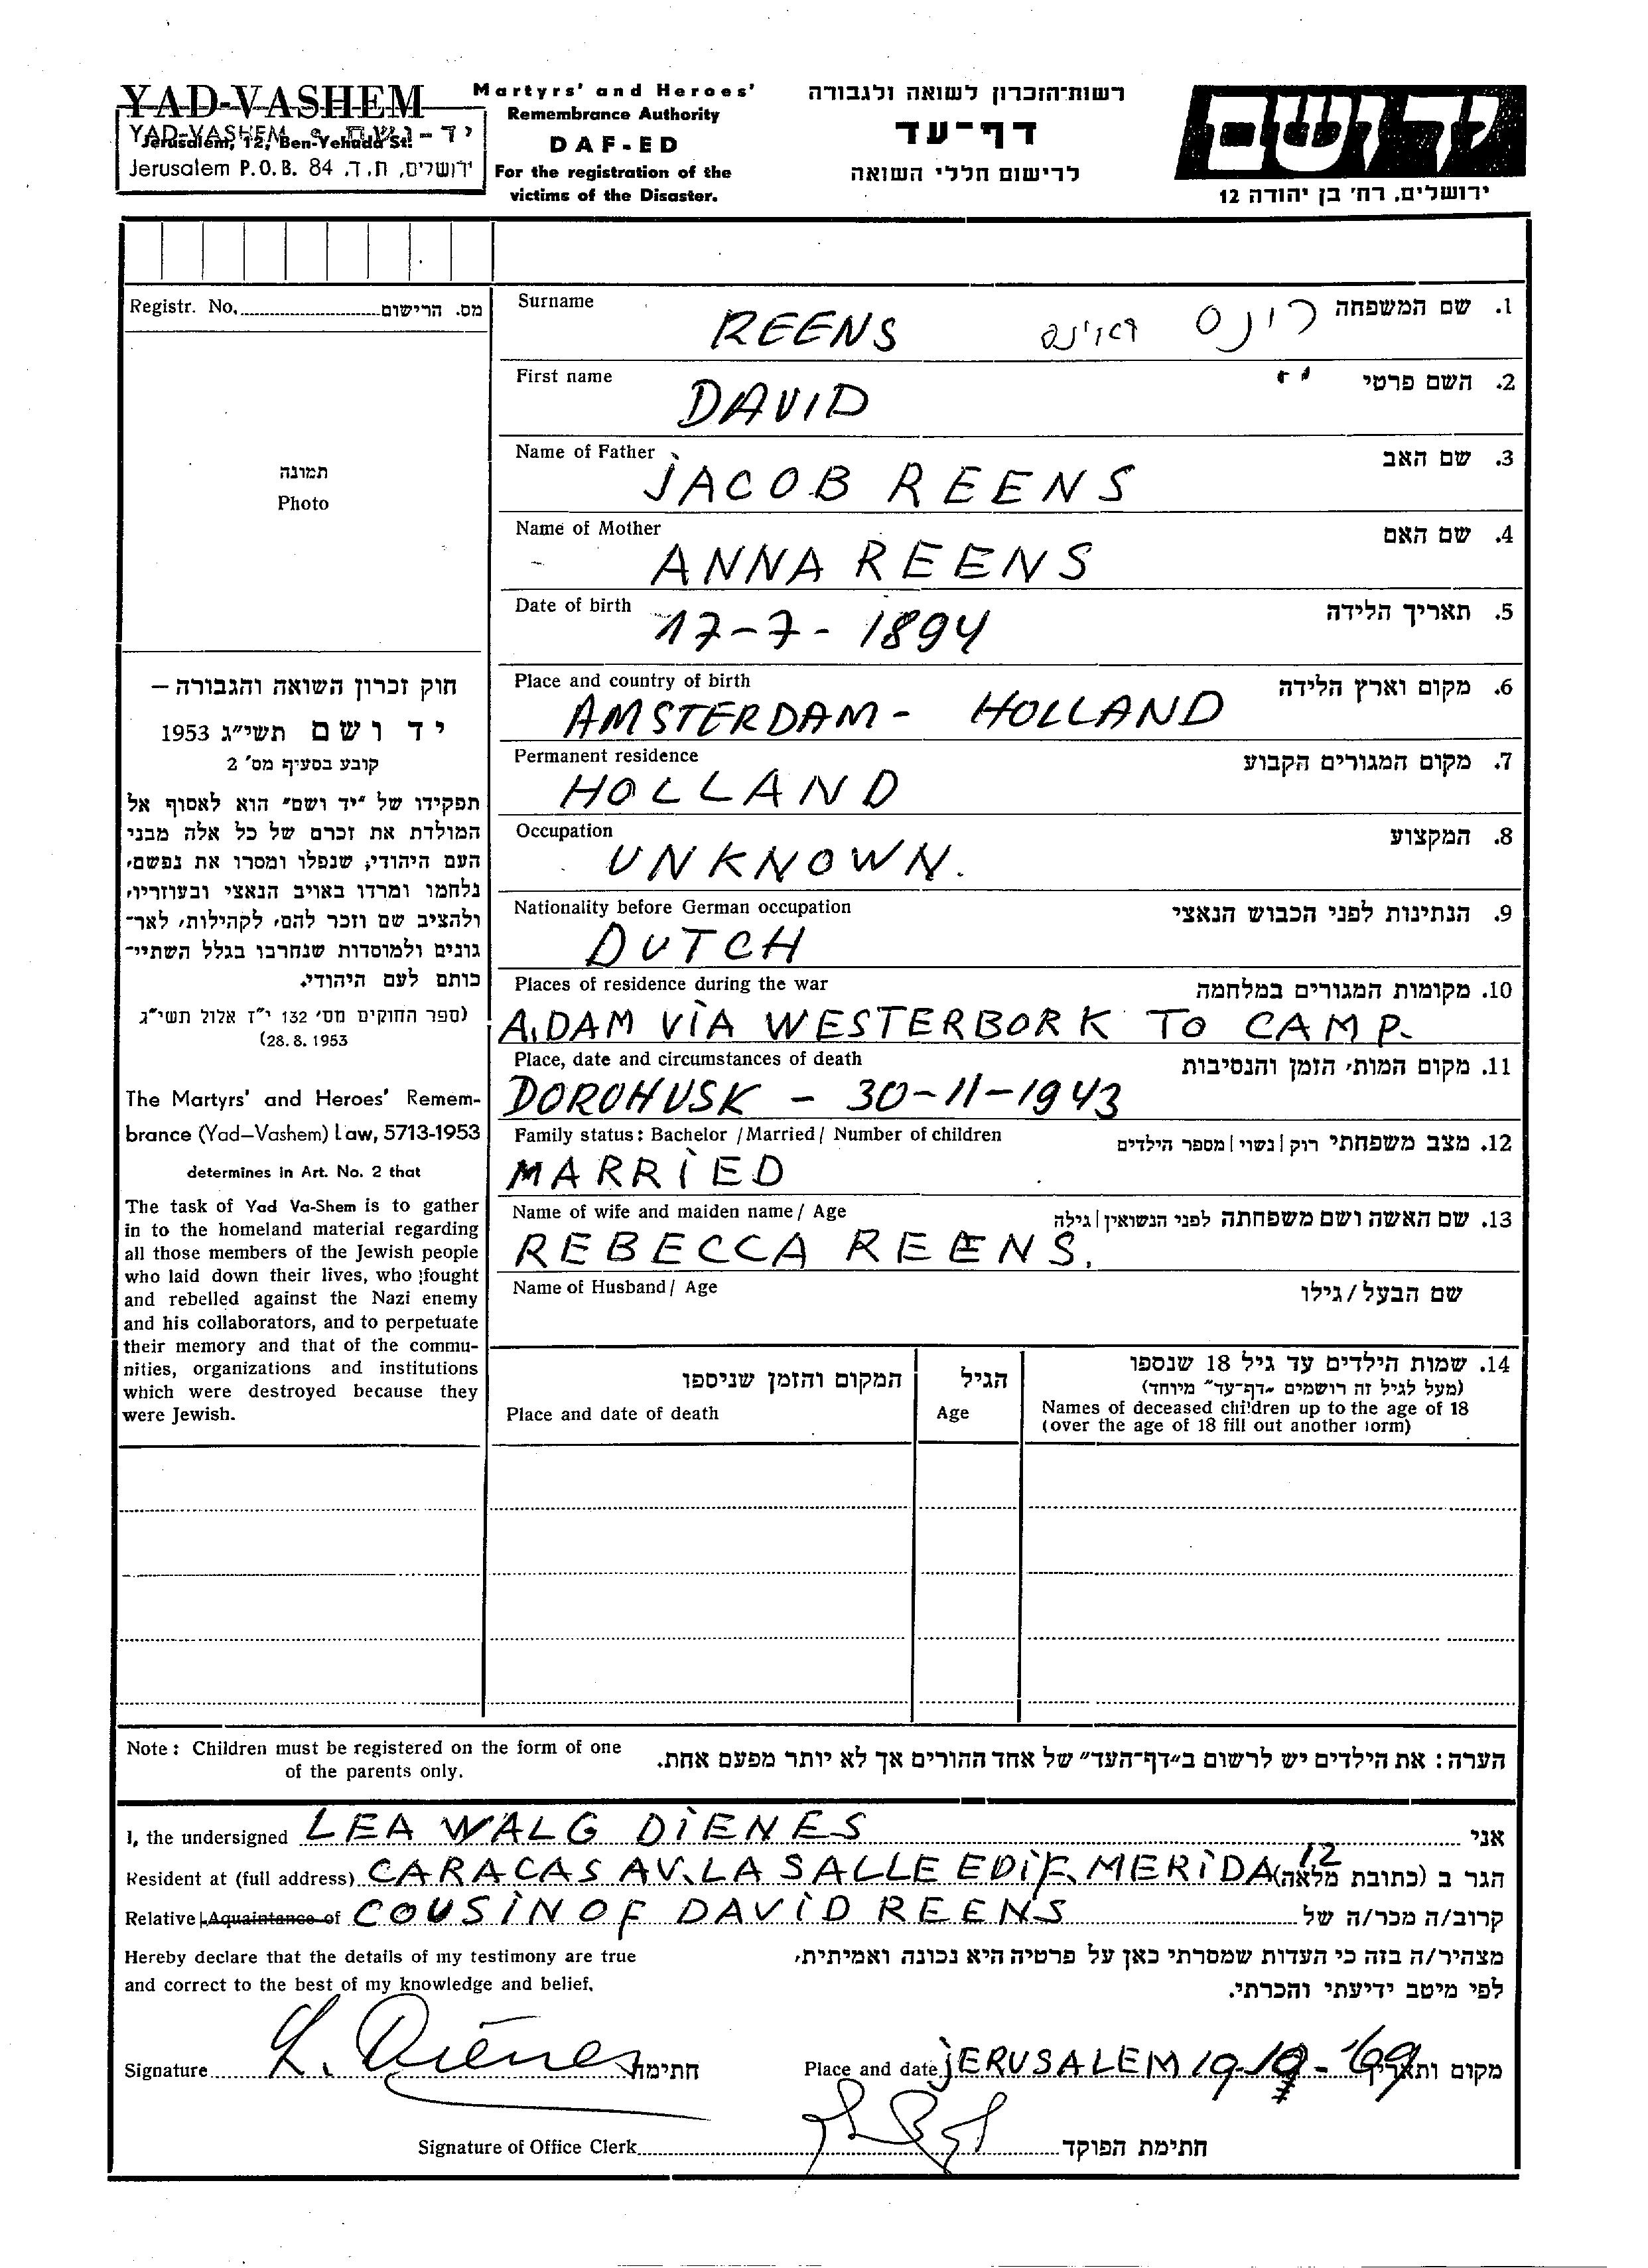 YAD-VASHEM
Jerusalem, 12, Ben-Yehuda St.
YAD-VASHEM יד-ושם
Jerusalem P.O.B. 84 .ירושלים, ת.ד
Martyrs' and Heroes'
Remembrance Authority
DAF-ED
For the registration of the
victims of the Disaster.
רשות־הזכרון לשואה ולגבורה
דף־עד
לרישום חללי השואה
ידושם
ירושלים, רח' בן יהודה 12
Registr. No. מס. הרישום
תמונה
Photo
חוק זכרון השואה והגבורה –
יד ושם תשי"ג 1953
קובע בסעיף מס' 2
תפקידו של "יד ושם" הוא לאסוף אל
המולדת את זכרם של כל אלה מבני
העם היהודי, שנפלו ומסרו את נפשם,
נלחמו ומרדו באויב הנאצי ובעוזריו,
ולהציב שם וזכר להם, לקהילות, לאר־
גונים ולמוסדות שנחרבו בגלל השתיי־
כותם לעם היהודי.
(ספר החוקים מס' 132 י"ז אלול תשי"ג
28.8.1953)
The Martyrs' and Heroes' Remem-
brance (Yad–Vashem) Law, 5713-1953
determines in Art. No. 2 that
The task of Yad Va-Shem is to gather
in to the homeland material regarding
all those members of the Jewish people
who laid down their lives, who fought
and rebelled against the Nazi enemy
and his collaborators, and to perpetuate
their memory and that of the commu-
nities, organizations and institutions
which were destroyed because they
were Jewish.
Surname 1. שם המשפחה
REENS ראינס רינס
First name 2. השם פרטי
DAVID
Name of Father 3. שם האב
JACOB REENS
Name of Mother 4. שם האם
ANNA REENS
Date of birth 5. תאריך הלידה
17-7-1894
Place and country of birth 6. מקום וארץ הלידה
AMSTERDAM - HOLLAND
Permanent residence 7. מקום המגורים הקבוע
HOLLAND
Occupation 8. המקצוע
UNKNOWN.
Nationality before German occupation 9. הנתינות לפני הכבוש הנאצי
DUTCH
Places of residence during the war 10. מקומות המגורים במלחמה
A.DAM VIA WESTERBORK TO CAMP.
Place, date and circumstances of death 11. מקום המות, הזמן והנסיבות
DOROHUSK - 30-11-1943
Family status: Bachelor / Married / Number of children 12. מצב משפחתי רוק | נשוי | מספר הילדים
MARRIED
Name of wife and maiden name / Age 13. שם האשה ושם משפחתה לפני הנשואין | גילה
REBECCA REENS.
Name of Husband / Age שם הבעל / גילו
המקום והזמן שניספו
Place and date of death
הגיל
Age
14. שמות הילדים עד גיל 18 שנספו
(מעל לגיל זה רושמים "דף־עד" מיוחד)
Names of deceased children up to the age of 18
(over the age of 18 fill out another form)
Note: Children must be registered on the form of one
of the parents only.
הערה: את הילדים יש לרשום ב"דף־העד" של אחד ההורים אך לא יותר מפעם אחת.
I, the undersigned LEA WALG DIENES אני
Resident at (full address) CARACAS AV. LA SALLE EDIF. MERIDA 12 הגר ב (כתובת מלאה)
Relative | Aquaintance of COUSIN OF DAVID REENS קרוב/ה מכר/ה של
Hereby declare that the details of my testimony are true
and correct to the best of my knowledge and belief.
מצהיר/ה בזה כי העדות שמסרתי כאן על פרטיה היא נכונה ואמיתית,
לפי מיטב ידיעתי והכרתי.
Signature L. Dienes חתימה
Place and date JERUSALEM מקום ותאריך
Signature of Office Clerk חתימת הפוקד